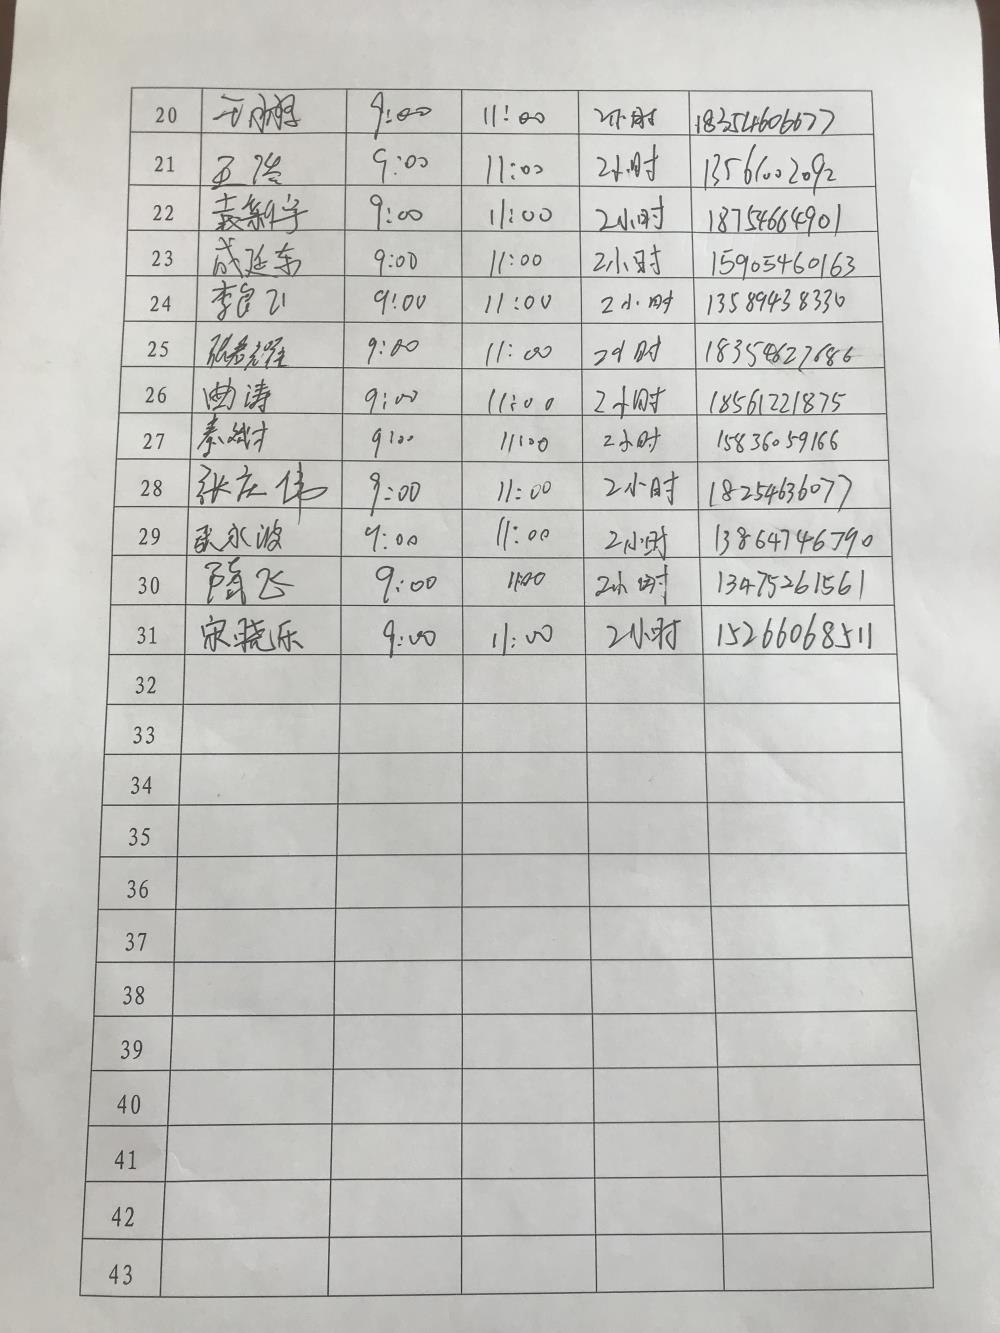 20 9:00 11:00 2小时 18354606677
21 9:00 11:00 2小时 13561002092
22 9:00 11:00 2小时 18754664901
23 成延东 9:00 11:00 2小时 15905460163
24 9:00 11:00 2小时 13589438330
25 9:00 11:00 2小时 18354627686
26 曲涛 9:00 11:00 2小时 18561221875
27 9:00 11:00 2小时 15836059166
28 张庆伟 9:00 11:00 2小时 18254636077
29 永波 9:00 11:00 2小时 13864746790
30 隋飞 9:00 11:00 2小时 13475261561
31 宋晓乐 9:00 11:00 2小时 15266068511
32
33
34
35
36
37
38
39
40
41
42
43